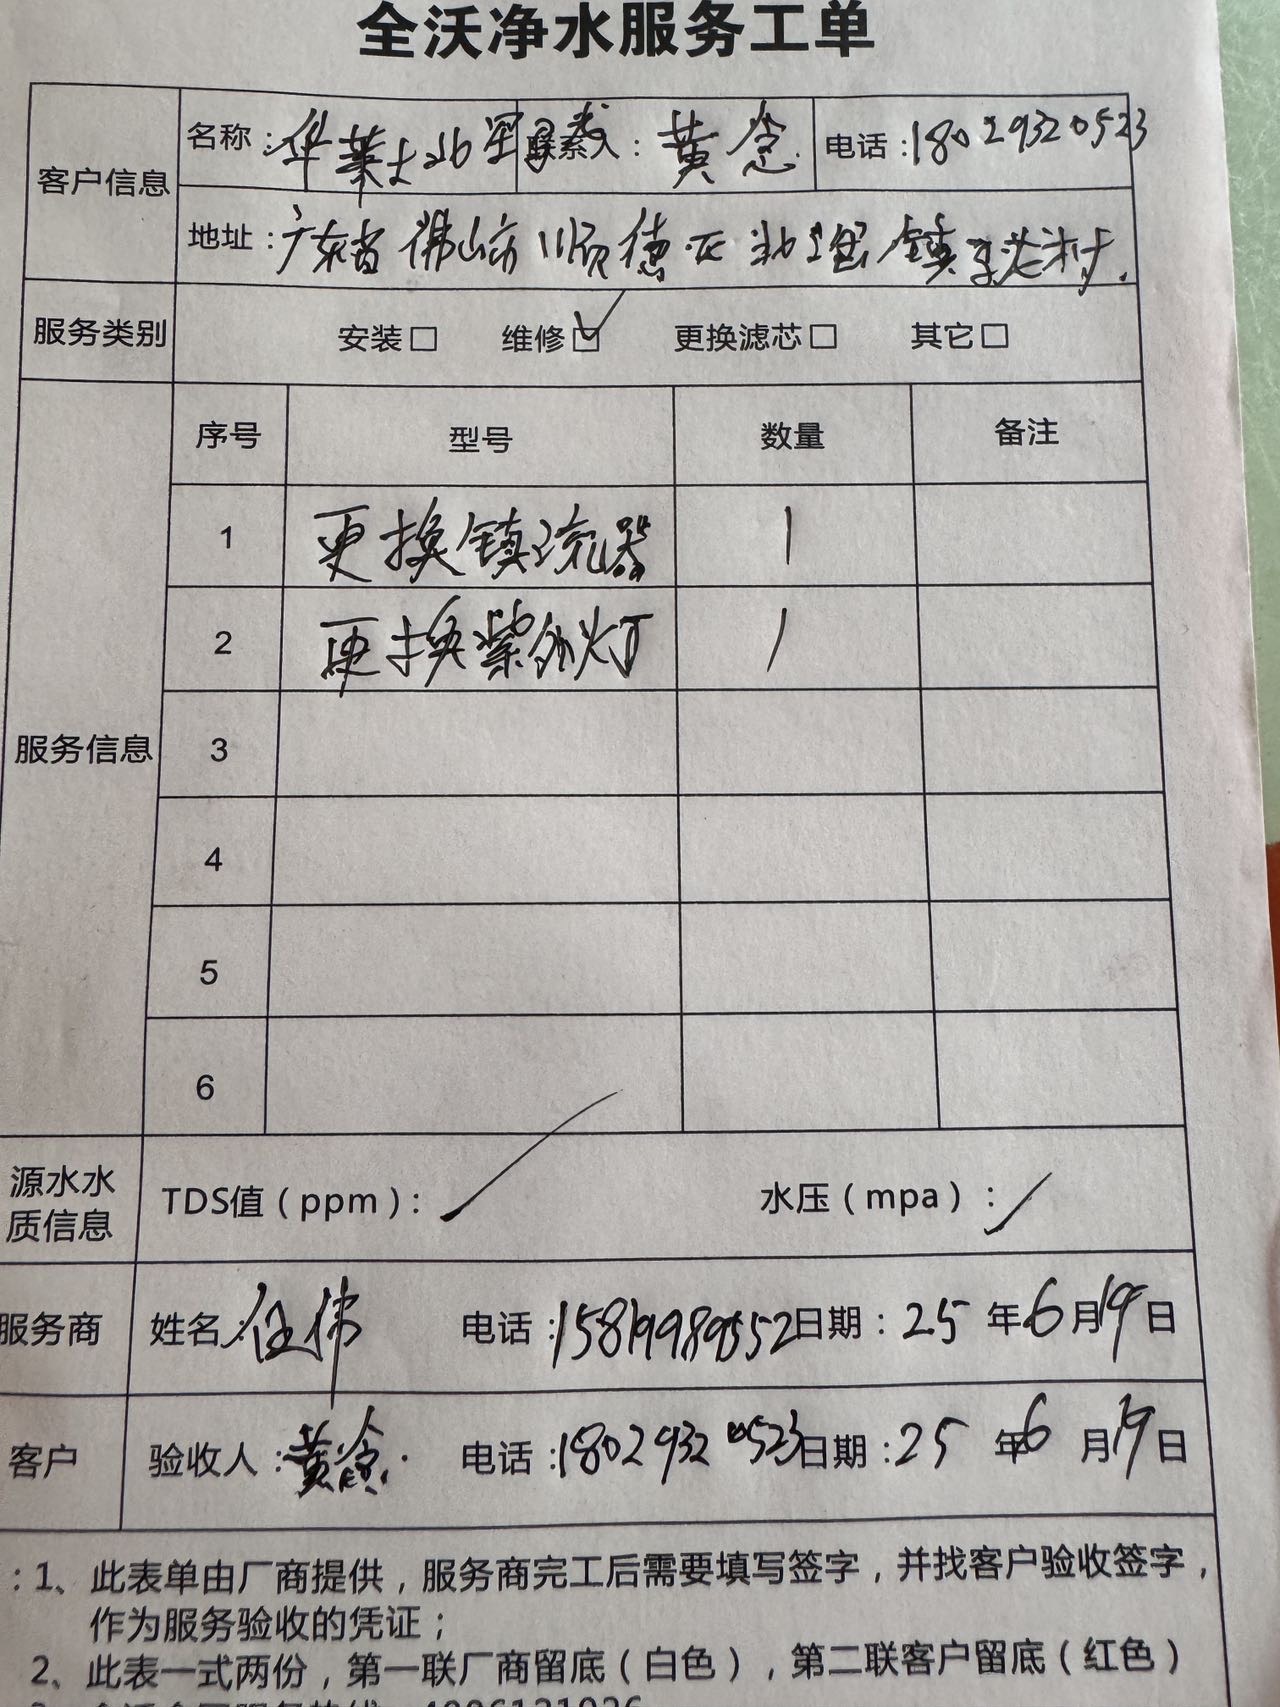 全沃净水服务工单
客户信息 名称：华莱士北 联系人：黄念 电话：18029320523
地址：广东省佛山市顺德区北滘镇 村
服务类别 安装□ 维修☑ 更换滤芯□ 其它□
服务信息 序号 型号 数量 备注
1 更换镇流器 1
2 更换紫外灯 1
3
4
5
6
源水水质信息 TDS值（ppm）：/ 水压（mpa）：/
服务商 姓名 任伟 电话：15819989552 日期：25年6月19日
客户 验收人：黄念 电话：18029320523 日期：25年6月19日
：1、此表单由厂商提供，服务商完工后需要填写签字，并找客户验收签字，
作为服务验收的凭证；
2、此表一式两份，第一联厂商留底（白色），第二联客户留底（红色）